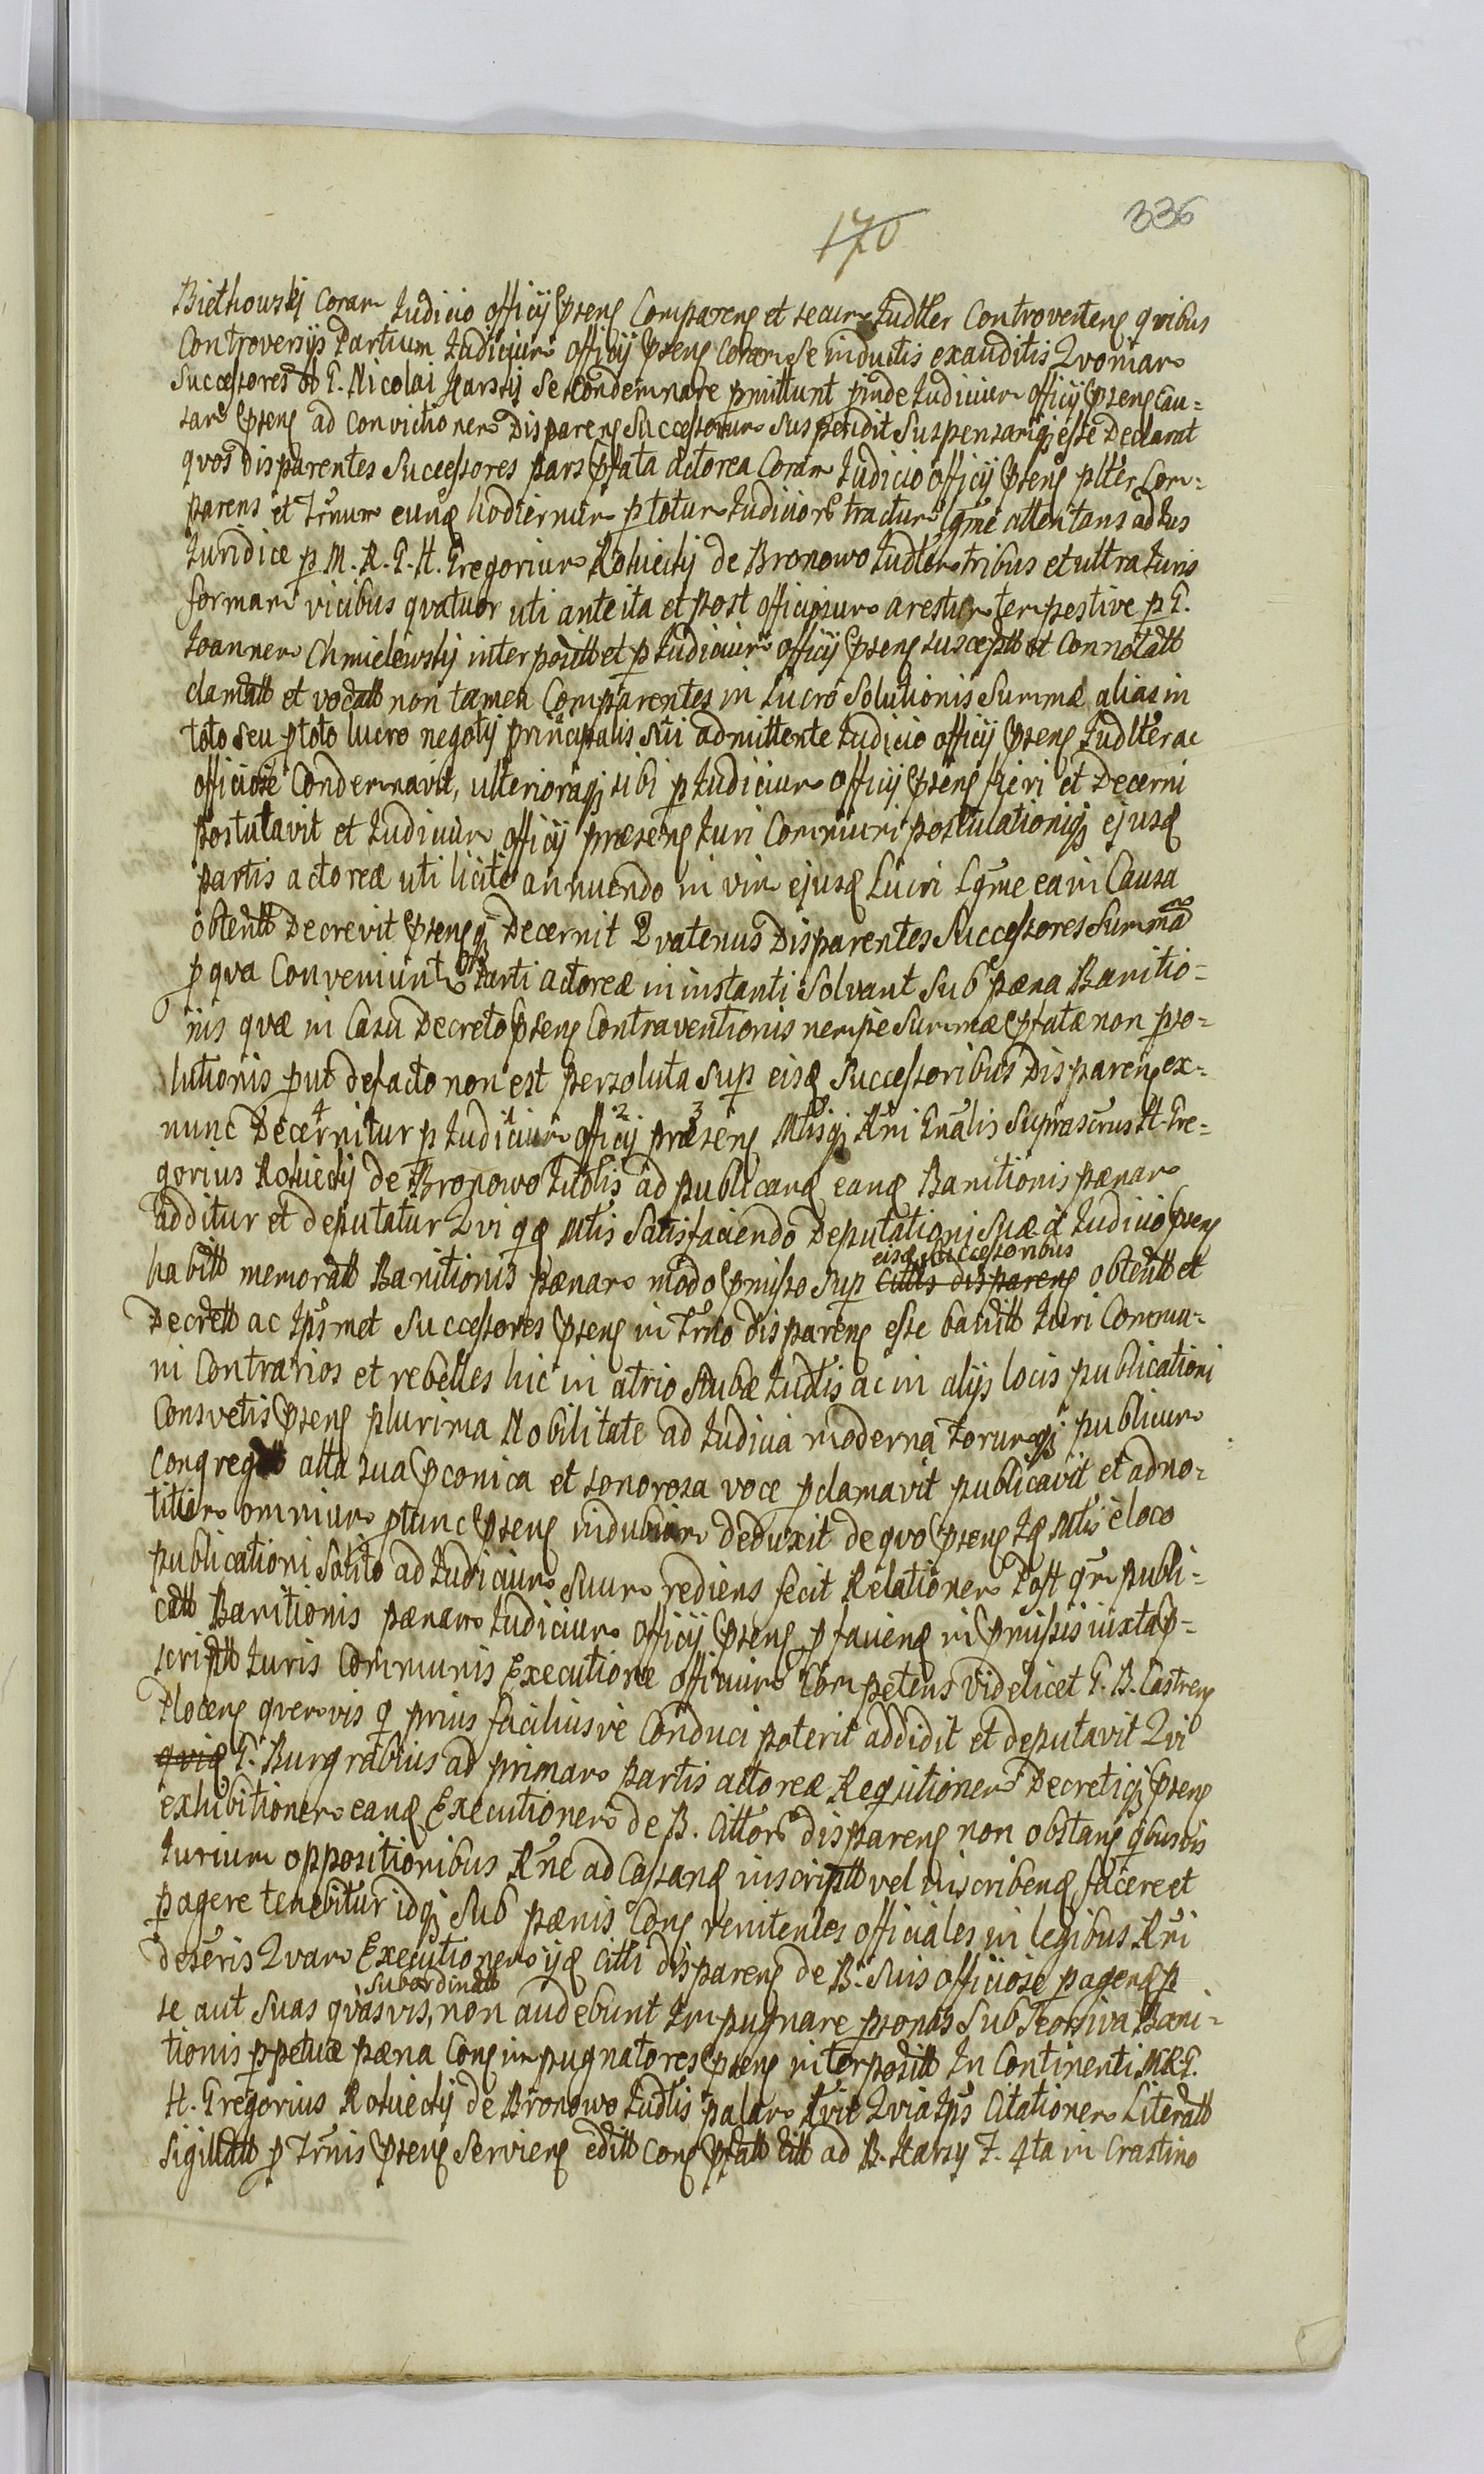 170
336
Biethowskj Coram Iudicio officij pñseñ Compareñ et secum Iudlter Controverteñ qvibus
Controversijs Partium Iudicium officij pñseñ coram se inductis exauditis Qvoniam
Successores G. Nicolai Harskj se condemnare pmittunt pinde Iudicium officij pñseñ Cau=
sam pñseñ ad convictionem Dispareñ Successorum suspendit Suspensamq esse Declarat
qvos disparentes Successores pars pfata Actorea Coram Iudicio officij pñseñ plter Com=
parens et Trnum eund hodiernum p totum Iudiciorum tractum Lgme attentans ad Ius
Iuridice p M. R. G. H. Gregorium Rościchj de Bronowo Iudlem tribus et ultra Iuris
formam vicibus qvatuor uti ante ita et post officiosum arestum tempestive p G.
Ioannem Chmielewskj interpositt et p Iudicium officij pñseñ susceptt et Connotatt
clamatt et vocatt non tamen Comparentes in Lucro Solutionis Summæ alias in
toto seu p toto lucro negotij principalis sui admittente Iudicio officij pñseñ Iudlter ac
officiose Condemnavit, ulterioraq sibi p Iudicium officij pñseñ fieri et Decerni
postulavit et Iudicium officij præseñ Iuri Communi postulationiq ejusd
partis actoreæ uti licite annuendo in vim ejusd Lucri Lgme ea in Causa
obtentt Decrevit pñseñq Decernit Qvatenus Disparentes Successores Summam
p qva Conveniunt Parti actoreæ in instanti Solvant Sub pæna Banitio=
nis qvæ in Casu Decreto pñseñ Contraventionis nempe Summæ pfatæ non pso=
lutionis put de facto non est persoluta sup eisd Successoribus Dispareñ ex=
nunc Decernitur p Iudicium officij præseñ Mtisq Rni Gnalis Suprascrus H. Gre=
gorius Rościchj de Bronowo Iudlis ad publicand eand Banitionis pænam
additur et deputatur Qvi qd Mtis Satisfaciendo Deputationi suæ à Iudicio pñseñ
habitt memoratt Banitionis pænam modo pmisso Sup Cittis dispareñ eisd Successoribus obtentt et
Decrett ac Ipsmet Successores pñseñ in Trno dispareñ esse banitt Iuri Commu=
ni Contrarios et rebelles hic in atrio Stubæ Iudlis ac in alijs locis publicationi
Consvetis pñseñ plurima Nobilitate ad Iudicia moderna Forumq publicum
congregatt alta sua pconica et sonorosa voce pclamavit publicavit et ad no=
titiam omnium ptunc pñseñ indubiam deduxit de qvo pñseñ Id Mtis è loco
publicationi Solito ad Iudicium Suum rediens fecit Relationem Post qm publi=
catt Banitionis pænam Iudicium officij pñseñ p facieñd in pmissis iuxta p=
scriptt Iuris Communis Executione officium Competens videlicet G. B. Castreñ
Ploceñ qvemvis qd prius faciliusve Conduci poterit addidit et deputavit Qvi
qvid G. Burgrabius ad primam partis actoreæ Reqsitionem Decretiq pñseñ
exhibitionem eand Executionem de B. Cittorum dispareñ non obstañ qbusvis
Iurium oppositionibus Rne ad Cassand inscriptt vel inscribend facere et
pagere tenebitur idq Sub pænis Conñ renitentes officiales in legibus Rni
deseris Qvam Executionem ijd Citti dispareñ de B. Suis officiose pagend p
se aut Suas qvasvis Subordinatt, non audebunt Impugnare psonas Sub Teomiva Bani=
tionis ppetuæ pæna Conñ impugnatores pñseñ interpositt In Continenti M R G.
H. Gregorius Rościchj de Bronowo Iudlis palam Rvit Qvia Ips Citationem Literatt
sigillatt p Trnis pñseñ Servieñ editt Conñ pfatt Citt ad B. Harsy F. 4ta in Crastino